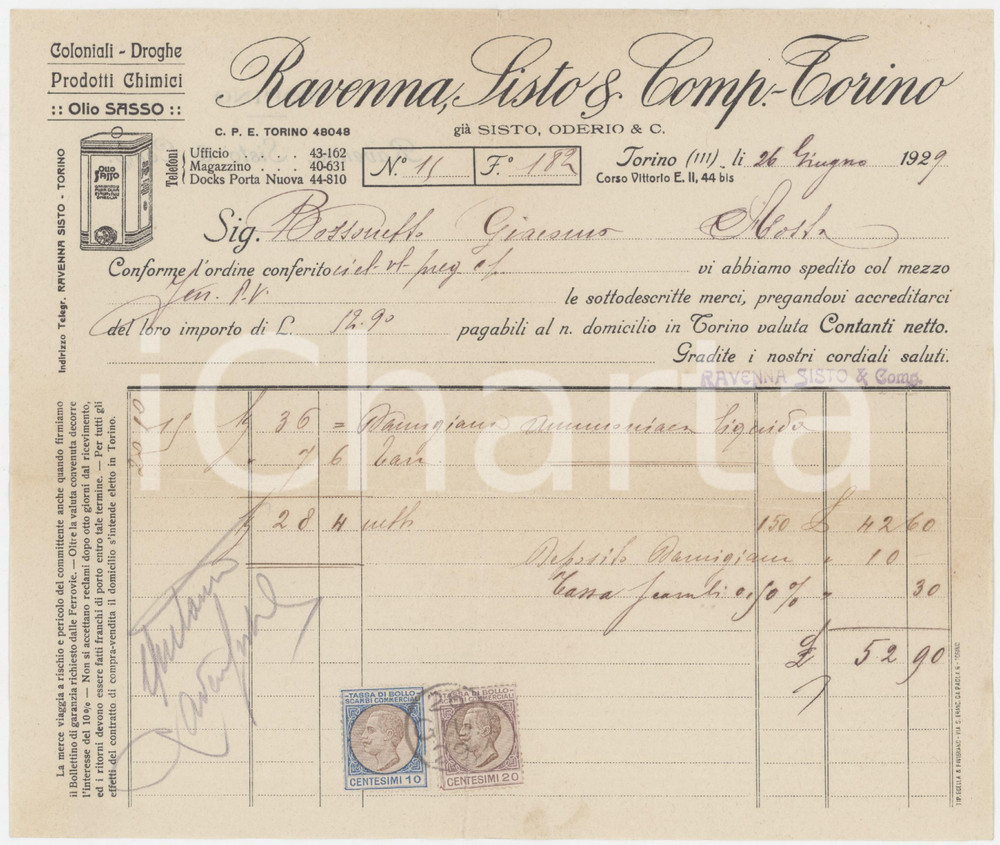 Coloniali - Droghe
Prodotti Chimici
:: Olio SASSO ::
Ravenna, Sisto & Comp.-Torino
già SISTO, ODERIO & C.
C. P. E. TORINO 48048
Telefoni
Ufficio . . . . 43-162
Magazzino . . . 40-631
Docks Porta Nuova 44-810
N.º 15 F.º 182
Torino (III) li 26 Giugno 1929
Corso Vittorio E. II, 44 bis
OLIO SASSO
Indirizzo Telegr. RAVENNA SISTO - TORINO
Sig. Giacomo Aosta
Conforme l'ordine conferito vi abbiamo spedito col mezzo
P.V. le sottodescritte merci, pregandovi accreditarci
del loro importo di L. 12.90 pagabili al n. domicilio in Torino valuta Contanti netto.
Gradite i nostri cordiali saluti.
RAVENNA SISTO & Comp.
iCharta
15 K 36 = Damigiana Ammoniaca liquida
" 7 6 Tara
K 28 4 netto 150 £ 42 60
Deposito Damigiana " 10 -
Tassa scambi 0,50% " 30
£ 52 90
La merce viaggia a rischio e pericolo del committente anche quando firmiamo
il Bollettino di garanzia richiesto dalle Ferrovie. — Oltre la valuta convenuta decorre
l'interesse del 10% — Non si accettano reclami dopo otto giorni dal ricevimento,
ed i ritorni devono essere fatti franchi di porto entro tale termine. — Per tutti gli
effetti del contratto di compra-vendita il domicilio s'intende eletto in Torino.
TASSA DI BOLLO
SCAMBI COMMERCIALI
CENTESIMI 10
TASSA DI BOLLO
SCAMBI COMMERCIALI
CENTESIMI 20